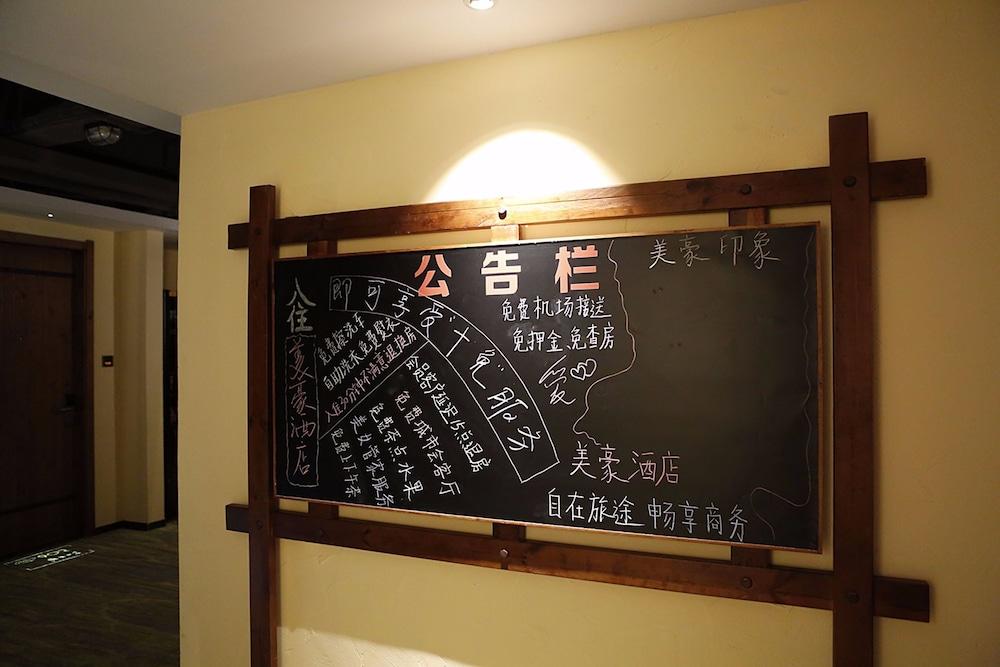 公告栏
美豪印象
入住
美豪酒店
即可享受"十免"服务
免费擦洗车
自助洗衣免费熨衣
入住30分钟不满意退换房
会员客户延迟15点退房
免费城市会客厅
免费茶点水果
美女管家服务
免费上下午茶
免费机场接送
免押金免查房
爱
美豪酒店
自在旅途 畅享商务